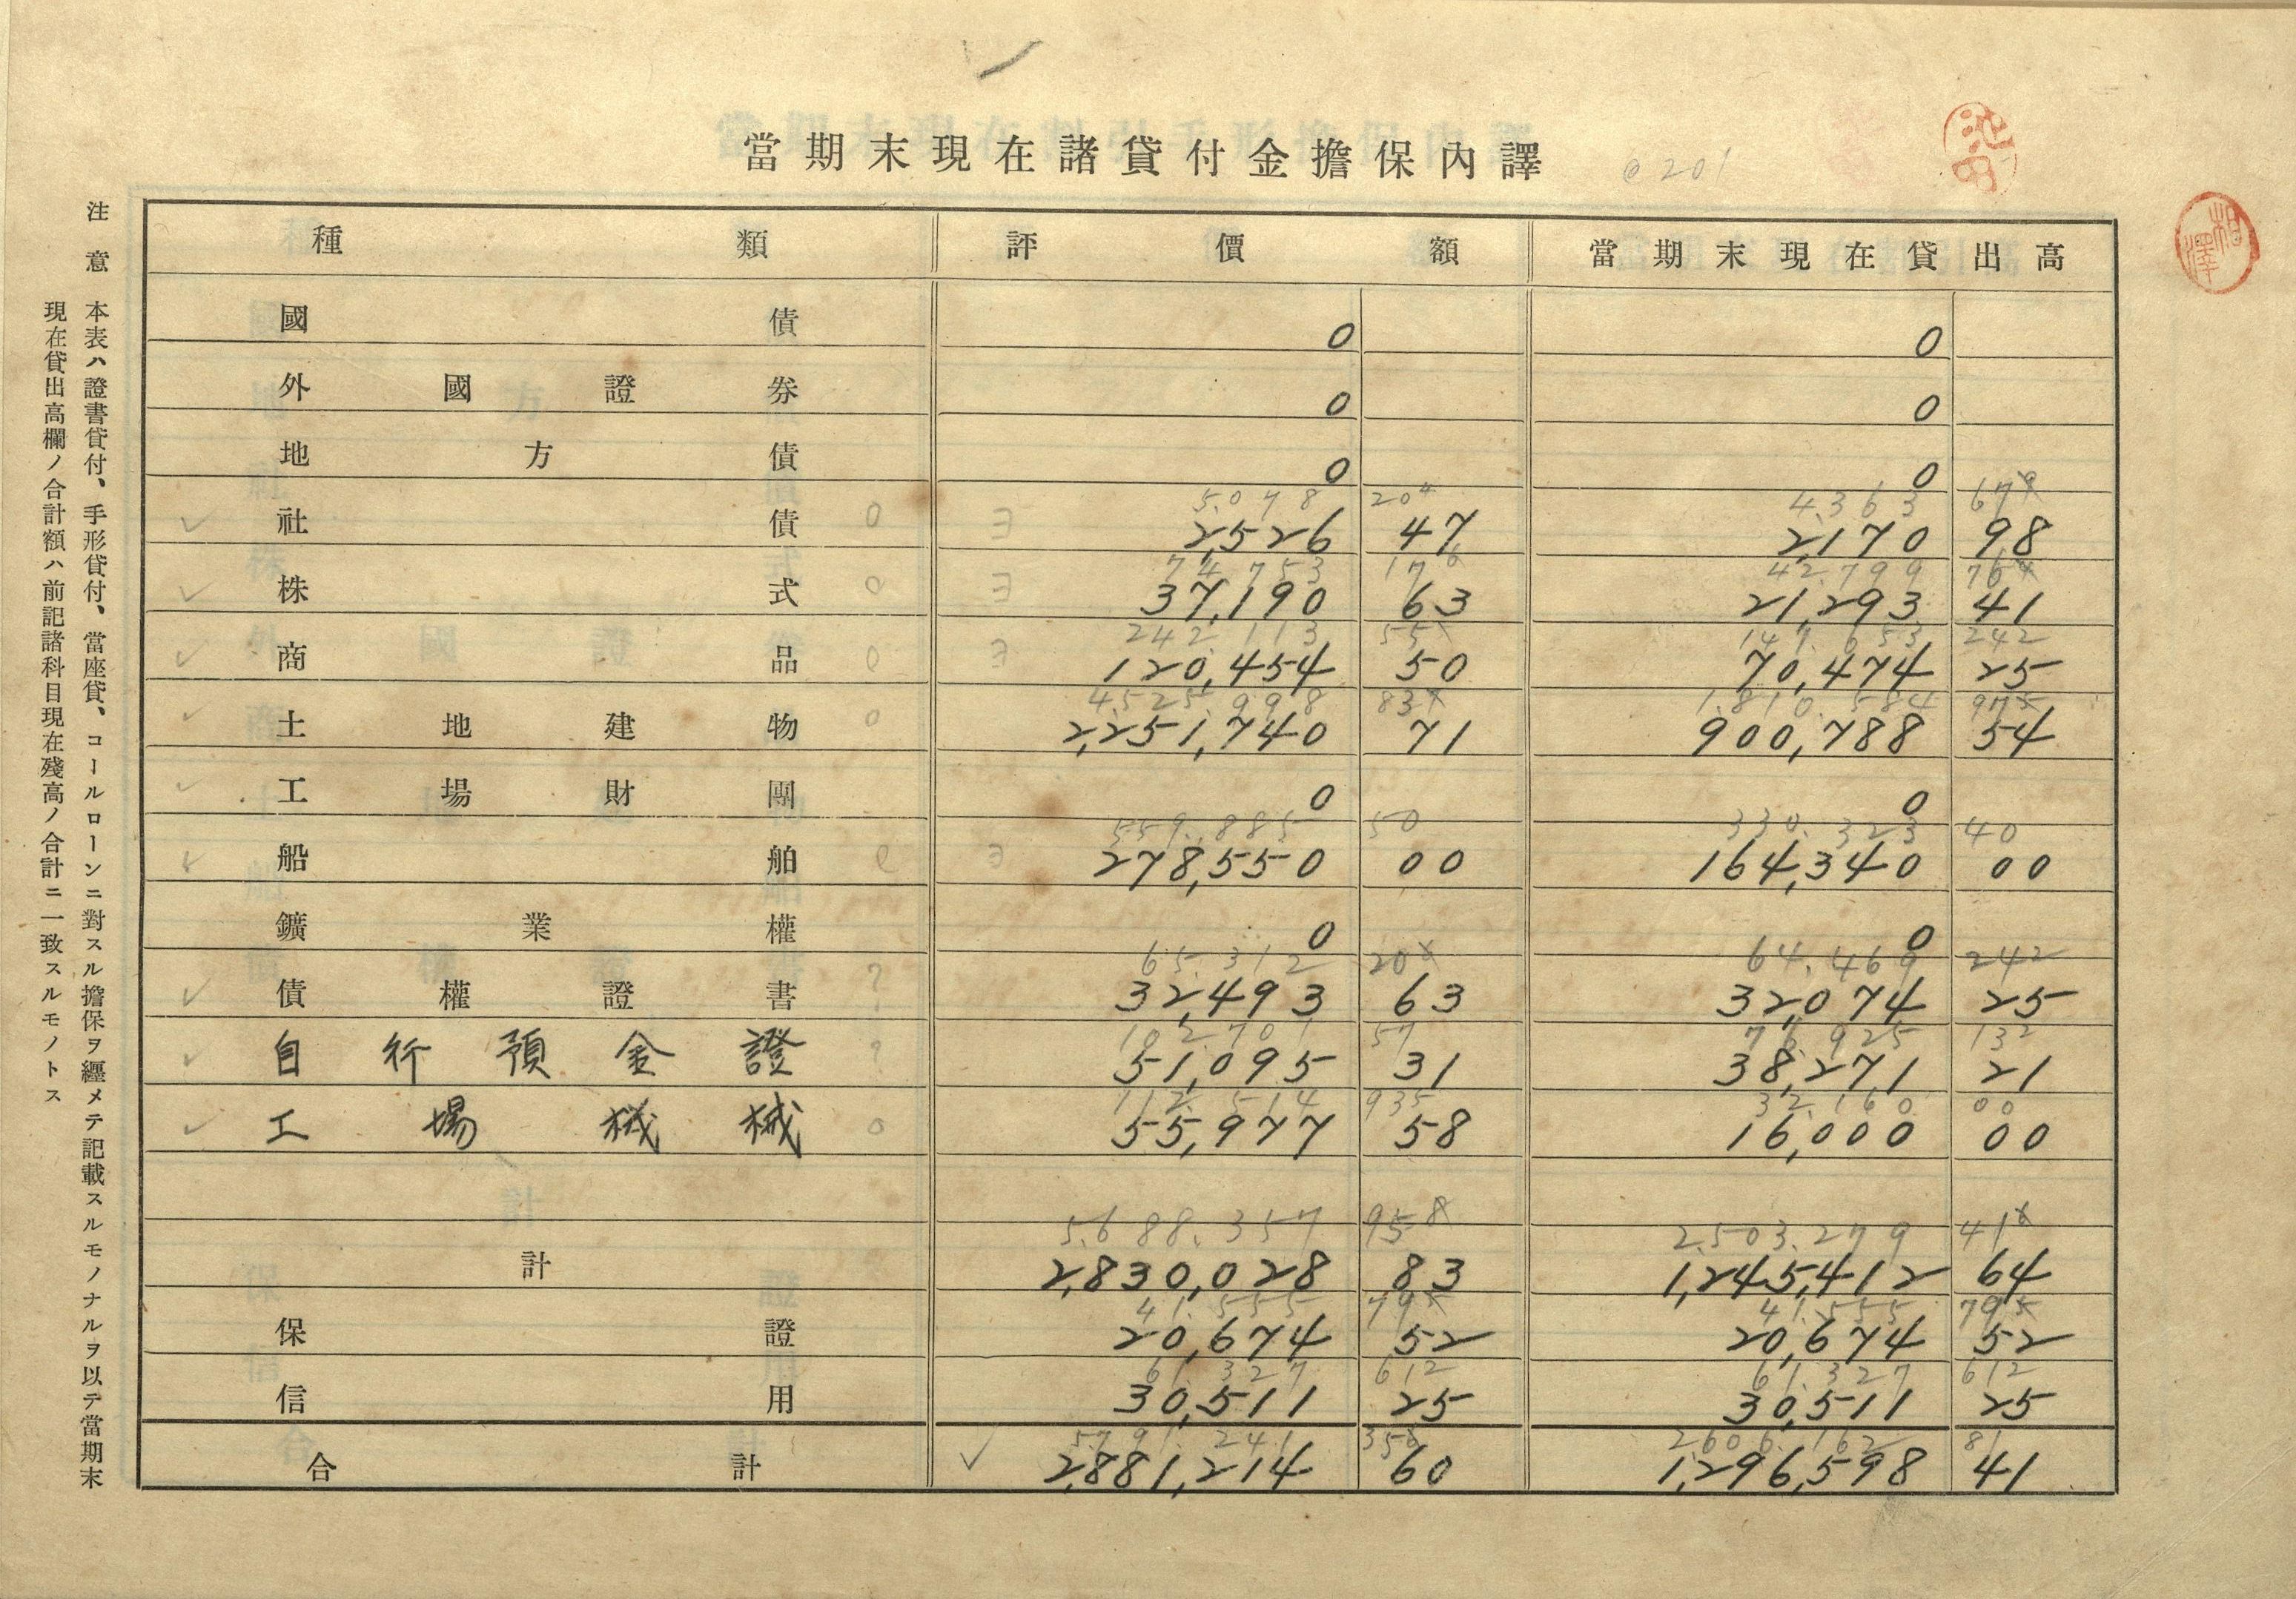 當期末現在諸貸付金擔保內譯
@201
相澤
種類 評價額 當期末現在貸出高
國債 0 0
外國證券 0 0
地方債 0 0
5.078 20⁴ 4.363 67⁹
社債 0 ヨ 2,526 47 2,170 98
74.753 17⁶ 42.799 76⁴
株式 0 ヨ 37,190 63 21,293 41
242.113 55 141.653 242
商品 0 ヨ 120,454 50 70,474 25
4.525.998 83 1.810.584 975
土地建物 0 2,251,740 71 900,788 54
工場財團 0 0
559.885 50 330.323 40
船舶 ヨ 278,550 00 164,340 00
鑛業權 0 0
65.312 20 64.469 242
債權證書 ? 32,493 63 32,074 25
102.701 57 76.925 132
自行預金證 ? 51,095 31 38,271 21
112.514 935 32.160 00
工場機械 0 55,977 58 16,000 00
5.688.357 958 2.503.279 41
計 2,830,028 83 1,245,412 64
41.555 79 41.555 795
保證 20,674 52 20,674 52
61.327 612 61.327 612
信用 30,511 25 30,511 25
5.791.241 358 2606.162 81
合計 2,881,214 60 1,296,598 41
注意 本表ハ證書貸付、手形貸付、當座貸、コールローンニ對スル擔保ヲ纒メテ記載スルモノナルヲ以テ當期末
現在貸出高欄ノ合計額ハ前記諸科目現在殘高ノ合計ニ一致スルモノトス